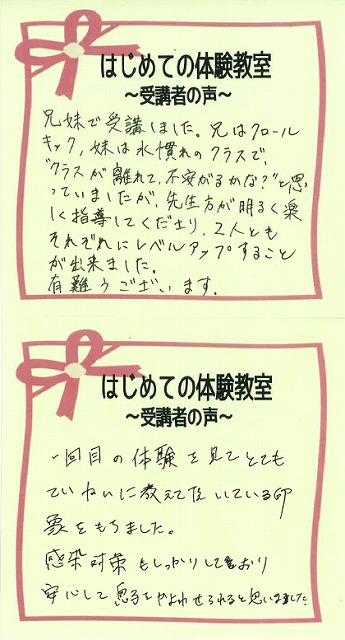 はじめての体験教室
～受講者の声～
兄妹で受講しました。兄はクロール
キック、妹は水慣れのクラスで、
"クラスが離れて、不安がるかな?"と思
っていましたが、先生方が明るく楽
しく指導してくださり、2人とも
それぞれにレベルアップすること
が出来ました。
有難うございます。
はじめての体験教室
～受講者の声～
一回目の体験を見てとても
ていねいに教えて頂いている印
象をもちました。
感染対策もしっかりしており
安心して息子をかよわせられると思いました。